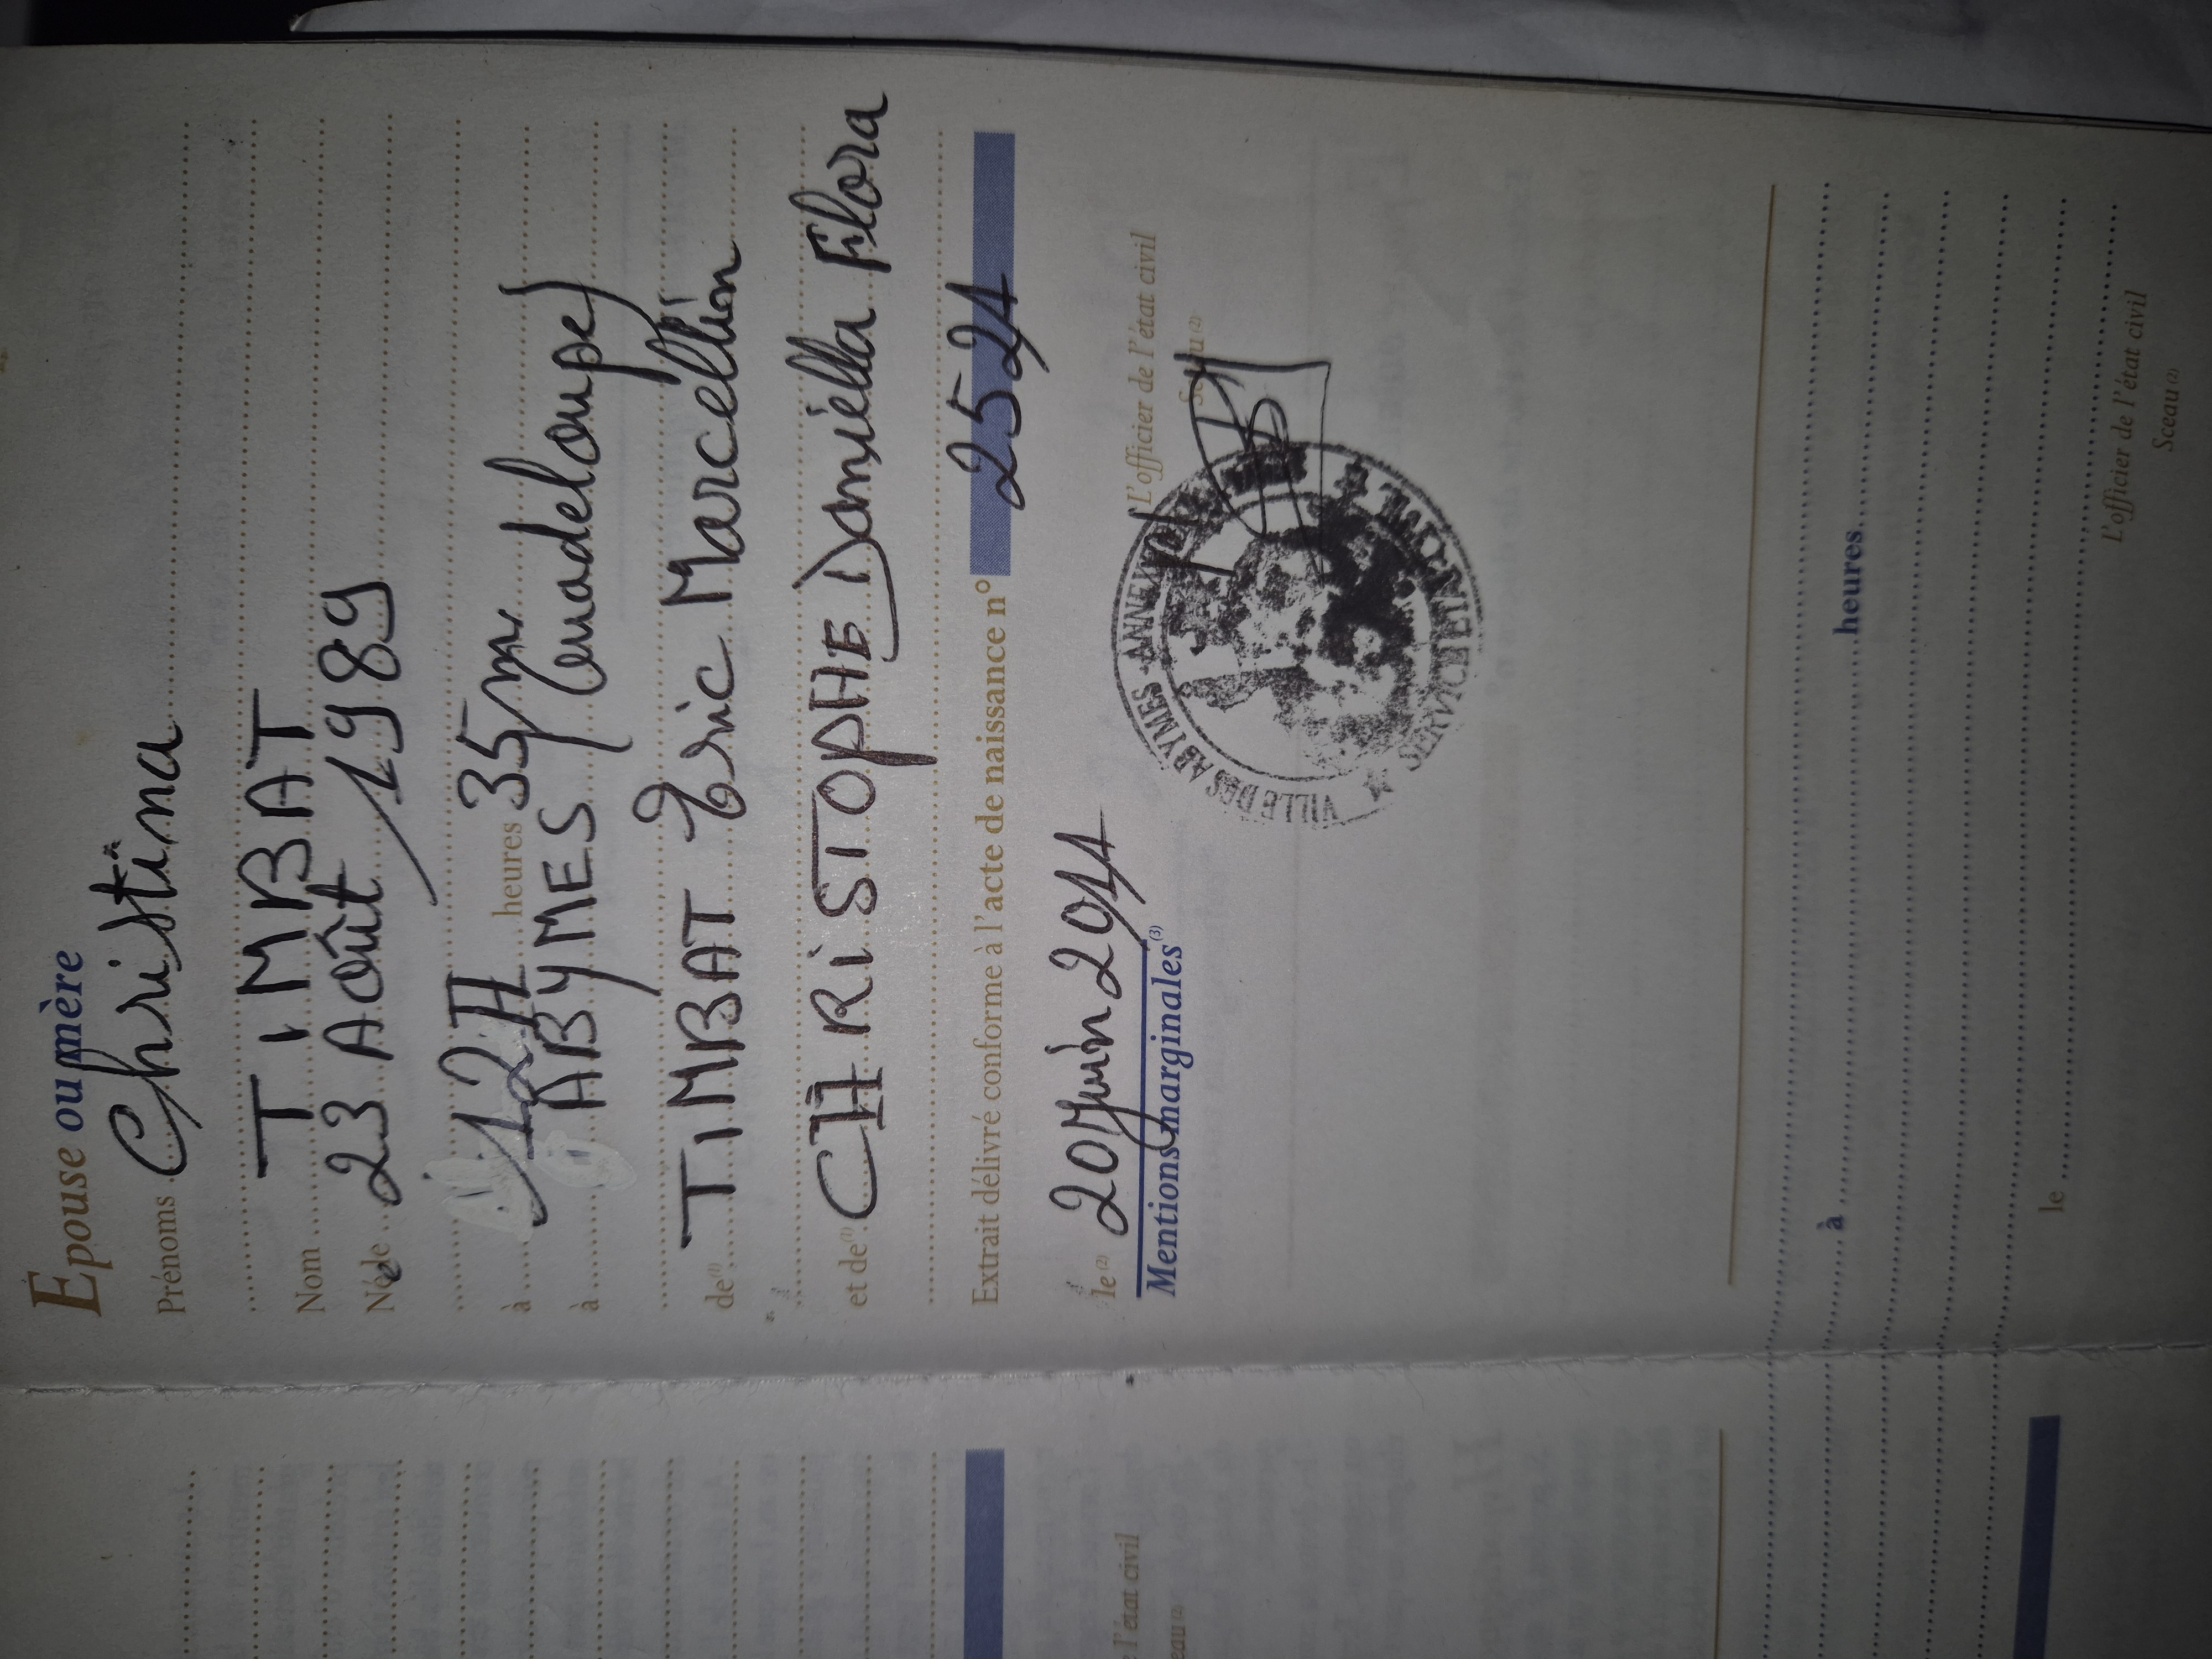 Epouse ou mère
Prénoms Christina
Nom TIMBAT
Née le 23 Août 1989
à 12H heures 35 mn
à ABYMES (Guadeloupe)
de(1) TIMBAT Eric Marcellin
et de(1) CHRISTOPHE Daniella Flora
Extrait délivré conforme à l'acte de naissance n° 2524
le(2) 20 Juin 2011
L'officier de l'état civil
Sceau(2)
VILLE DES ABYMES - ANNEXE
SERVICE ETAT
Mentions marginales(3)
à heures
le
L'officier de l'état civil
Sceau(2)
l'état civil
eau(2)